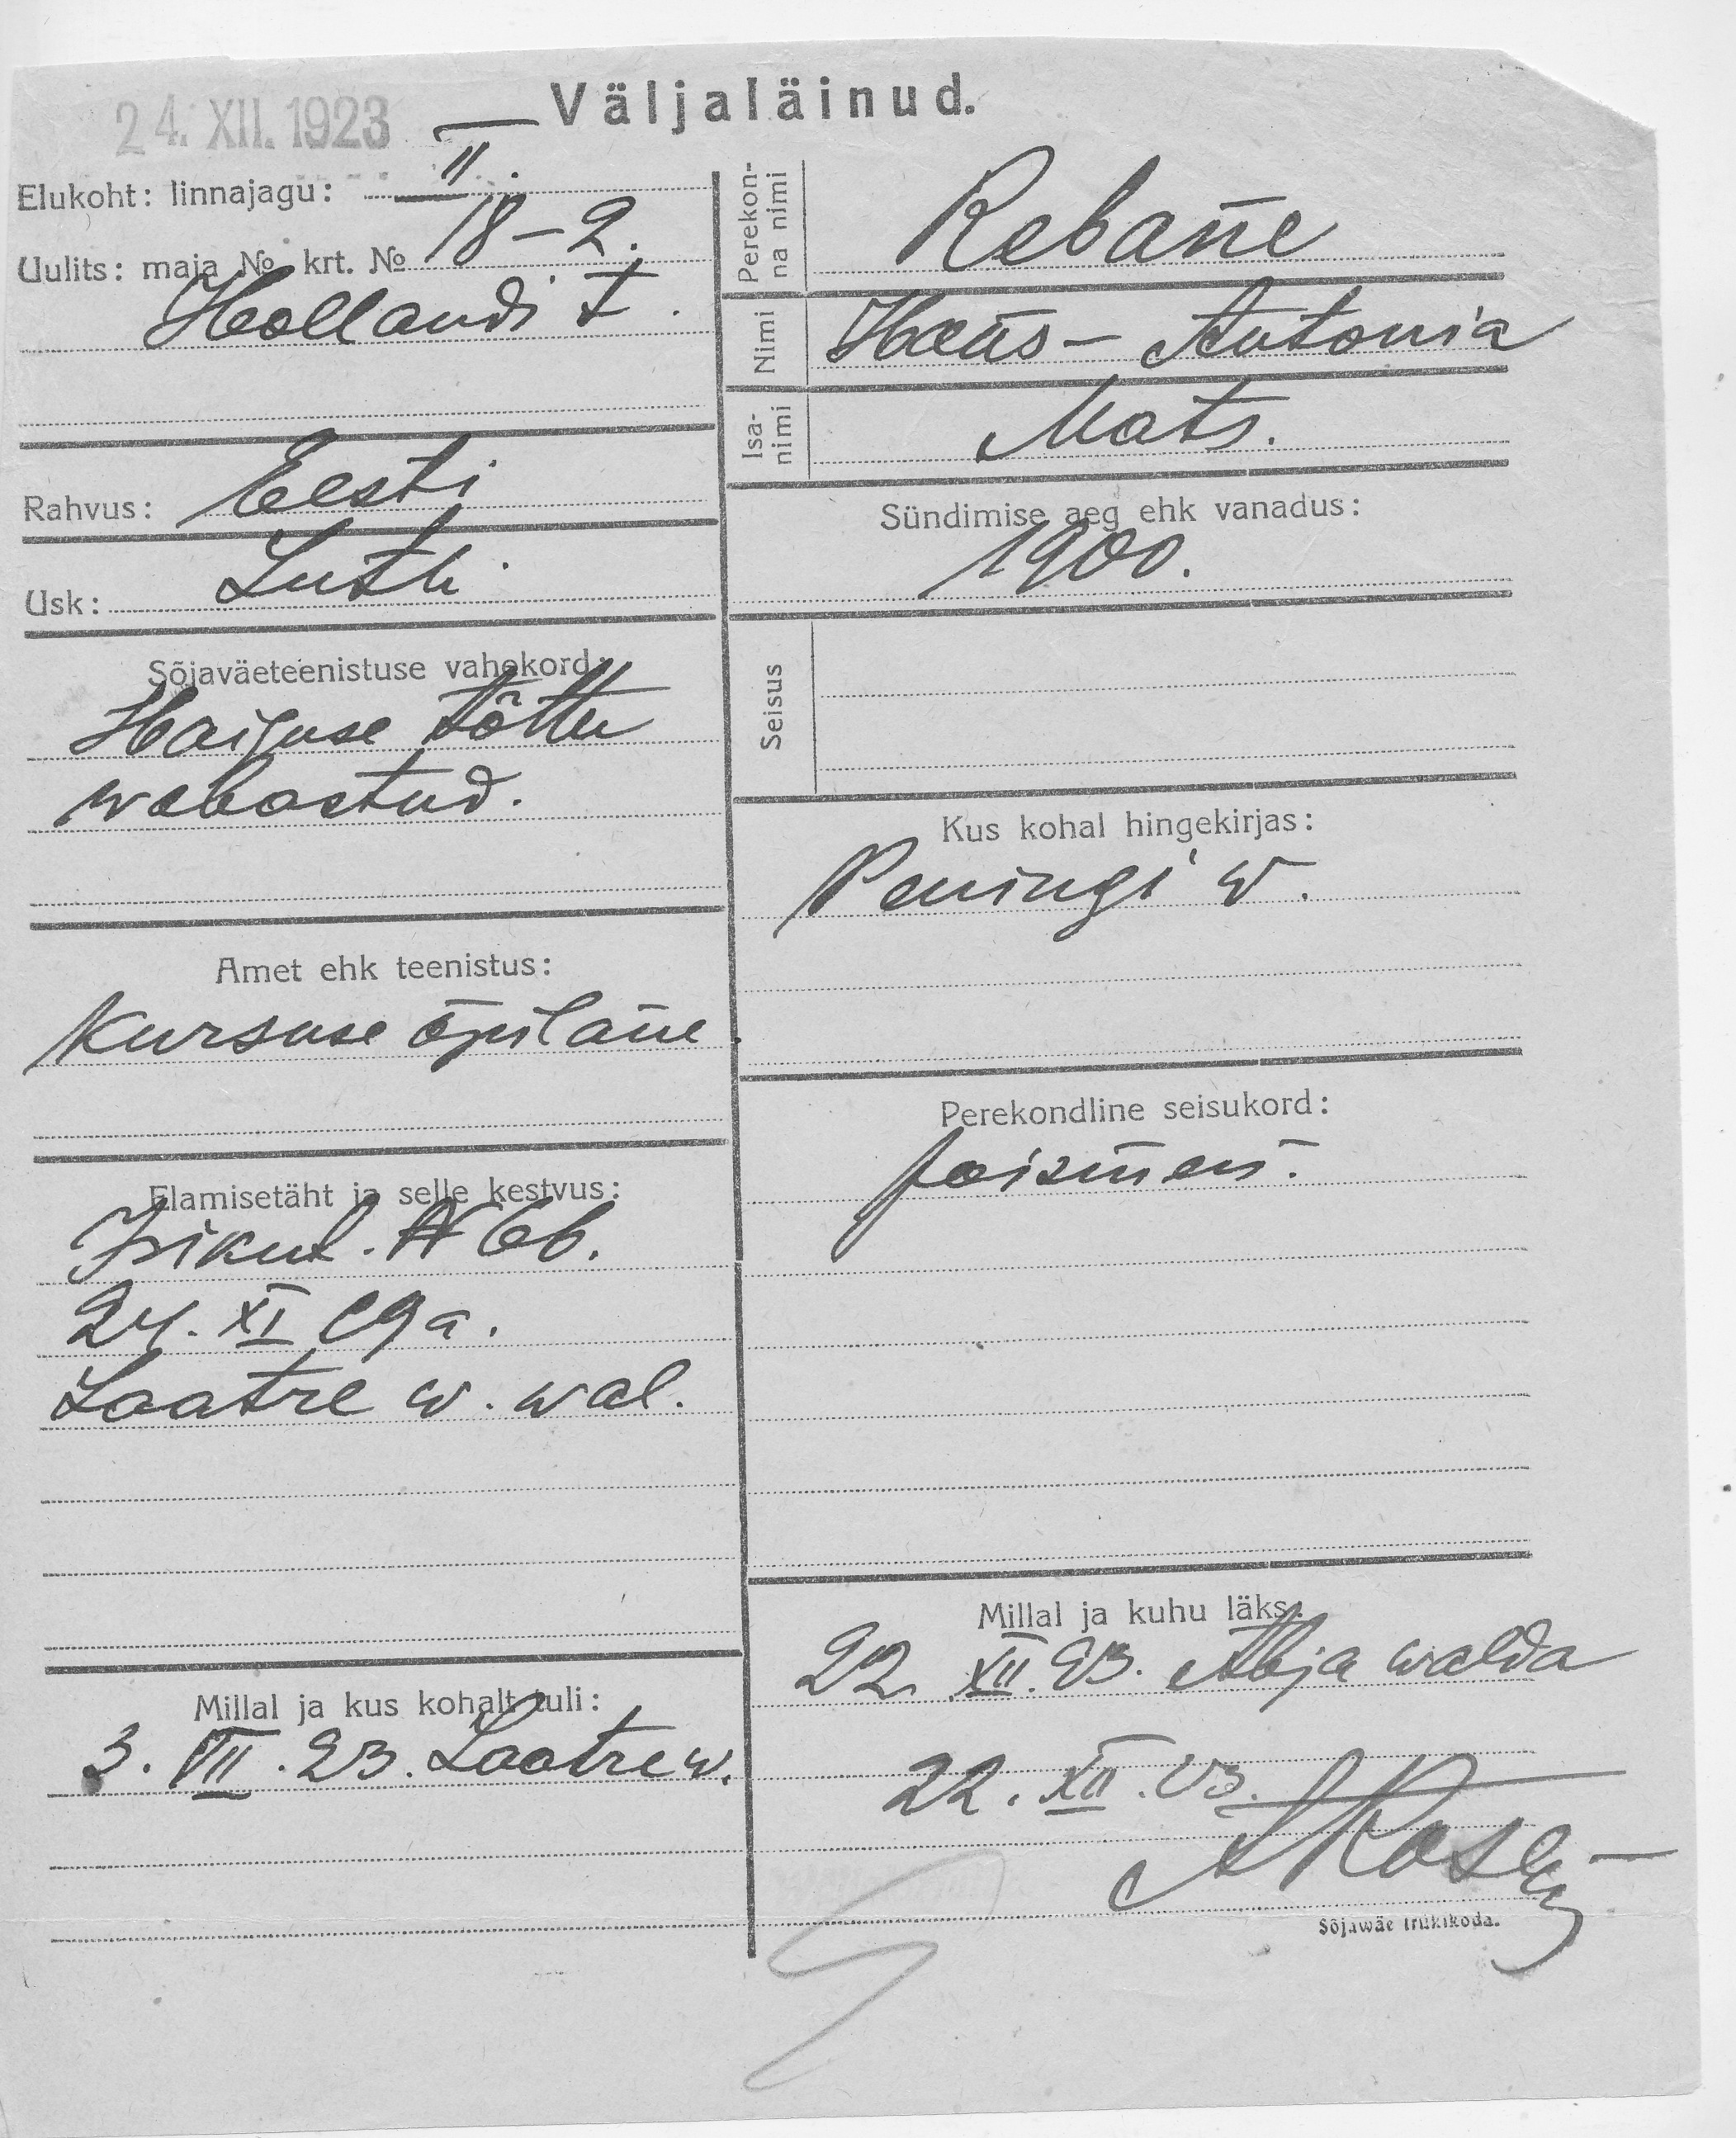 24. XII. 1923
Väljaläinud.
Elukoht: linnajagu: II.
Uulits: maja № krt. № 18-2.
Hollandi t.
Rahvus: Eesti
Usk: Luth.
Sõjaväeteenistuse vahekord:
Haiguse tõttu
wabastud.
Amet ehk teenistus:
Kursuse õpilane.
Elamisetäht ja selle kestvus:
Isikut. № 66.
24. XI 19 a.
Laatre w. wal.
Millal ja kus kohalt tuli:
3. VII. 23. Laatre w.
Perekonna nimi
Rebane
Nimi
Hans - Antonia
Isanimi
Mats.
Sündimise aeg ehk vanadus:
1900.
Seisus
Kus kohal hingekirjas:
Peningi w.
Perekondline seisukord:
poismees.
Millal ja kuhu läks:
22. XII. 23. Abja walda
22. XII. 23.
Sõjawäe trükikoda.